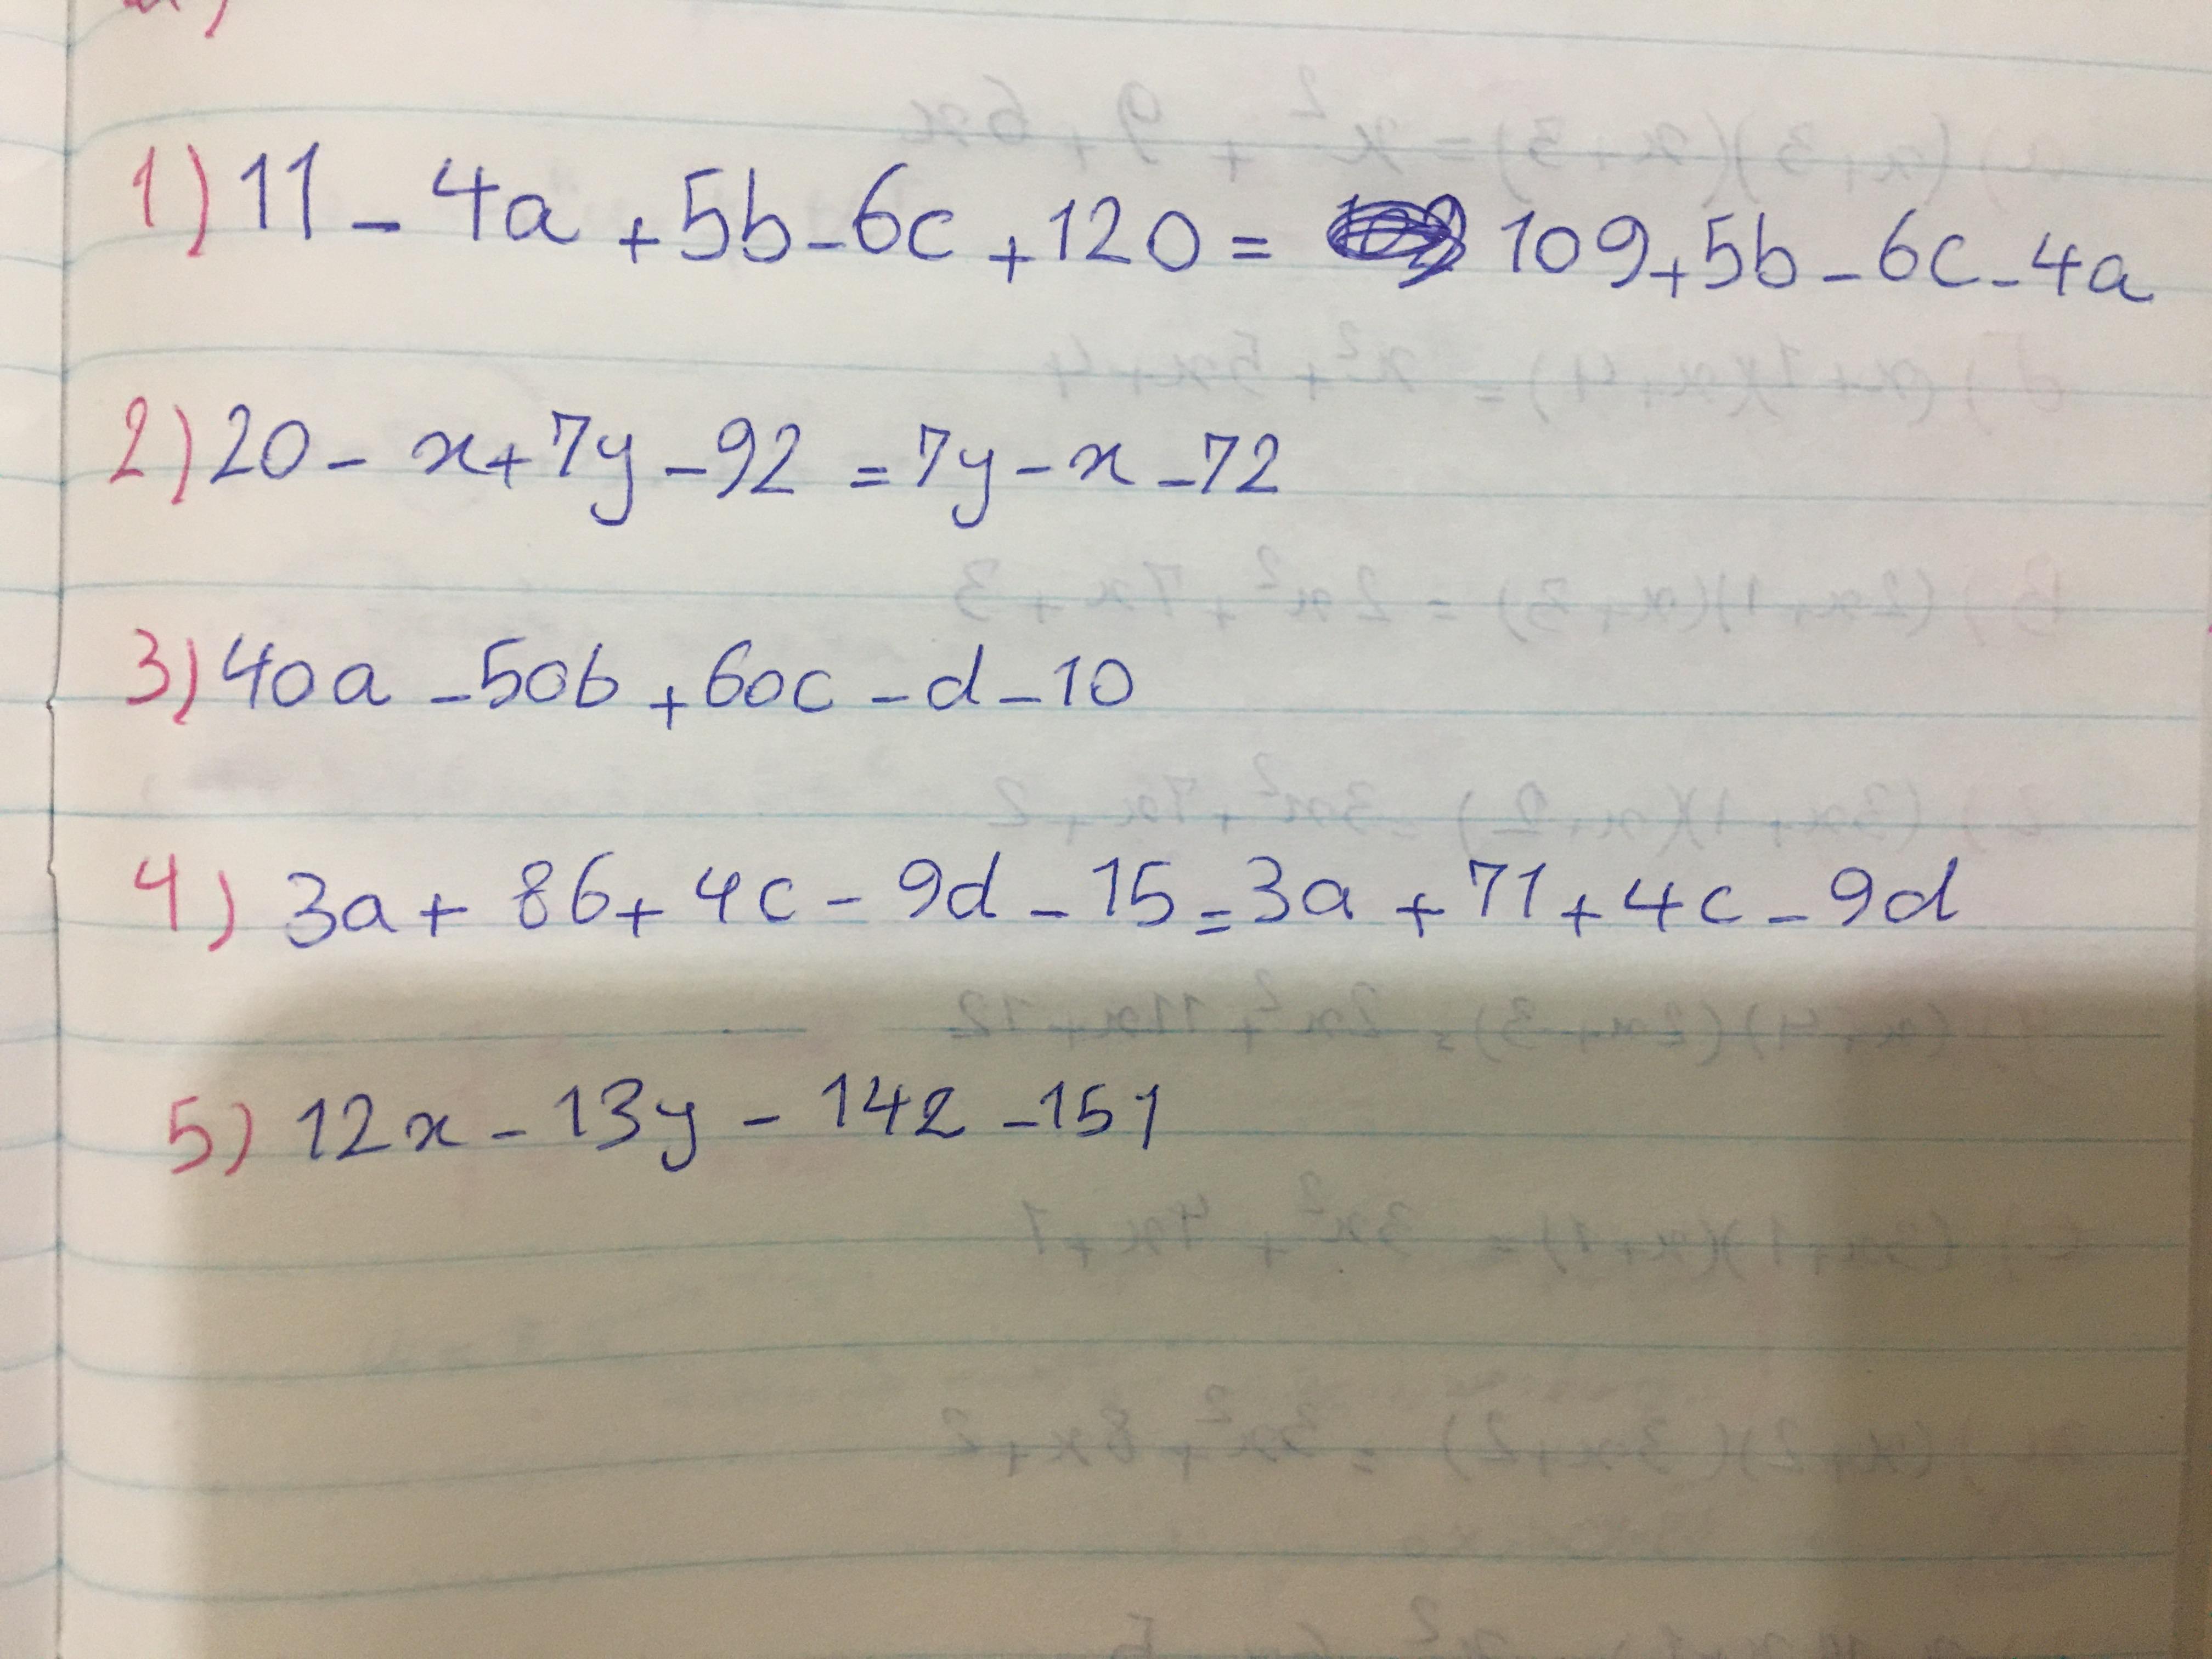 1) 11 - 4a + 5b - 6c + 120 = 109 + 5b - 6c - 4a
2) 20 - x + 7y - 92 = 7y - x - 72
3) 40a - 50b + 60c - d - 10
4) 3a + 86 + 4c - 9d - 15 = 3a + 71 + 4c - 9d
5) 12x - 13y - 142 - 151